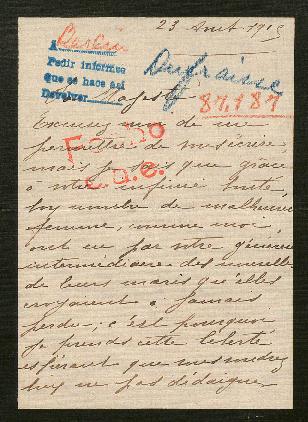 23 Aout 191
A Berlin
Pedir informes
que se hace así
Devolver
Dufraisse
87,187
Majesté
Excusez moi de me
permettre de
mais je sais que grâce
a votre infinie bonté,
bon nombre de malheureuses
femmes, comme moi,
ont eu par votre généreux
intermédiaire des nouvelles
de leurs maris qu'elles
croyaient a jamais
perdu, c'est pourquoi
je prends cette liberté
espérant que vous voudrez
bien ne pas dédaigner